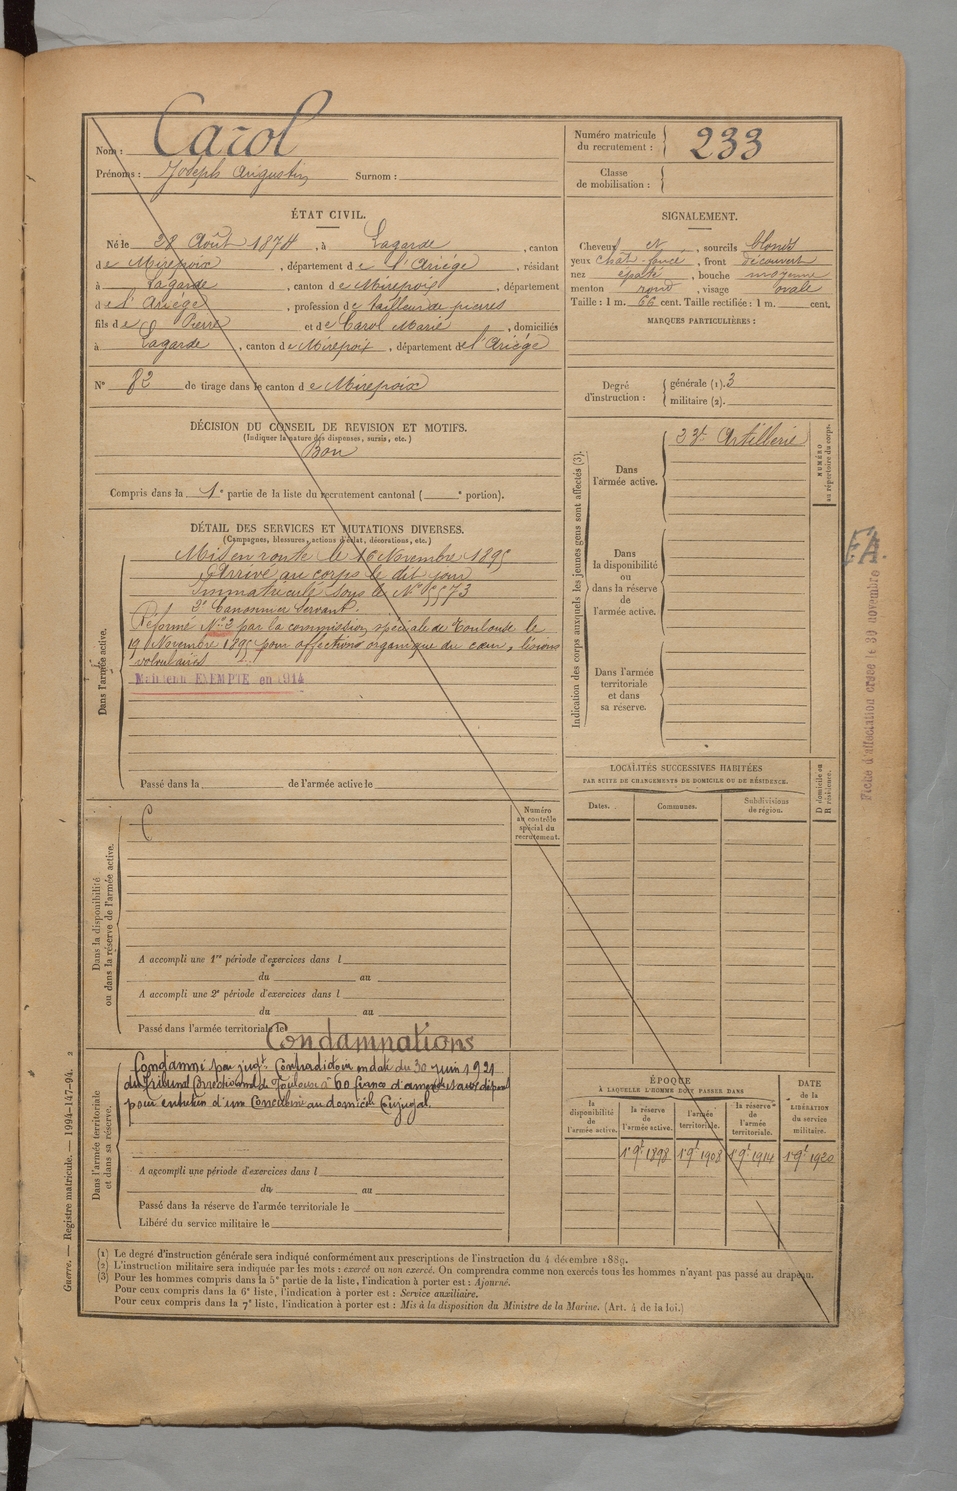 Nom : Carol
Prénoms : Joseph Augustin Surnom :
Numéro matricule du recrutement : 233
Classe de mobilisation :
ÉTAT CIVIL.
Né le 28 Août 1874, à Lagarde, canton
de Mirepoix, département de l'Ariège, résidant
à Lagarde, canton de Mirepoix, département
de l'Ariège, profession de tailleur de pierres
fils de Pierre et de Carol Marie, domiciliés
à Lagarde, canton de Mirepoix, département de l'Ariège
N° 82 de tirage dans le canton de Mirepoix
SIGNALEMENT.
Cheveux et, sourcils blonds
yeux chat. foncé, front découvert
nez épaté, bouche moyenne
menton rond, visage ovale
Taille : 1 m. 66 cent. Taille rectifiée : 1 m. cent.
MARQUES PARTICULIÈRES :
Degré d'instruction : générale (1). 3
militaire (2).
DÉCISION DU CONSEIL DE REVISION ET MOTIFS.
(Indiquer la nature des dispenses, sursis, etc.)
Bon
Compris dans la 1e partie de la liste du recrutement cantonal ( e portion).
DÉTAIL DES SERVICES ET MUTATIONS DIVERSES.
(Campagnes, blessures, actions d'éclat, décorations, etc.)
Dans l'armée active.
Mis en route le 16 Novembre 1895
Arrivé au corps le dit jour
Immatriculé sous le N° 5573
2e Canonnier Servant.
Réformé N° 2 par la commission spéciale de Toulouse le
19 Novembre 1895 pour affection organique du cœur, lésions
valvulaires
Maintenu EXEMPTÉ en 1914
Passé dans la de l'armée active le
Indication des corps auxquels les jeunes gens sont affectés (3).
NUMÉRO au répertoire du corps.
Dans l'armée active.
23e Artillerie
Dans la disponibilité ou dans la réserve de l'armée active.
Dans l'armée territoriale et dans sa réserve.
F.A.
Fiche d'affectation créée le 30 novembre
LOCALITÉS SUCCESSIVES HABITÉES
PAR SUITE DE CHANGEMENTS DE DOMICILE OU DE RÉSIDENCE.
Dates. Communes. Subdivisions de région.
D domicile ou R résidence.
Dans la disponibilité ou dans la réserve de l'armée active.
Numéro au contrôle spécial du recrutement.
A accompli une 1re période d'exercices dans l
du au
A accompli une 2e période d'exercices dans l
du au
Passé dans l'armée territoriale le
Condamnations
Dans l'armée territoriale et dans sa réserve.
Condamné par jugt. Contradictoire en date du 30 juin 1921
du Tribunal Correctionnel de Toulouse à 60 francs d'amende et aux dépens
pour entretien d'une Concubine au domicile Conjugal.
A accompli une période d'exercices dans l
du au
Passé dans la réserve de l'armée territoriale le
Libéré du service militaire le
ÉPOQUE
À LAQUELLE L'HOMME DOIT PASSER DANS
la disponibilité de l'armée active. la réserve de l'armée active. l'armée territoriale. la réserve de l'armée territoriale.
DATE de la LIBÉRATION du service militaire.
1er 9bre 1898 1er 9bre 1908 1er 9bre 1914 1er 9bre 1920
(1) Le degré d'instruction générale sera indiqué conformément aux prescriptions de l'instruction du 4 décembre 1889.
(2) L'instruction militaire sera indiquée par les mots : exercé ou non exercé. On comprendra comme non exercés tous les hommes n'ayant pas passé au drapeau.
(3) Pour les hommes compris dans la 5e partie de la liste, l'indication à porter est : Ajourné.
Pour ceux compris dans la 6e liste, l'indication à porter est : Service auxiliaire.
Pour ceux compris dans la 7e liste, l'indication à porter est : Mis à la disposition du Ministre de la Marine. (Art. 4 de la loi.)
Guerre. — Registre matricule. — 1994-147-94. 2